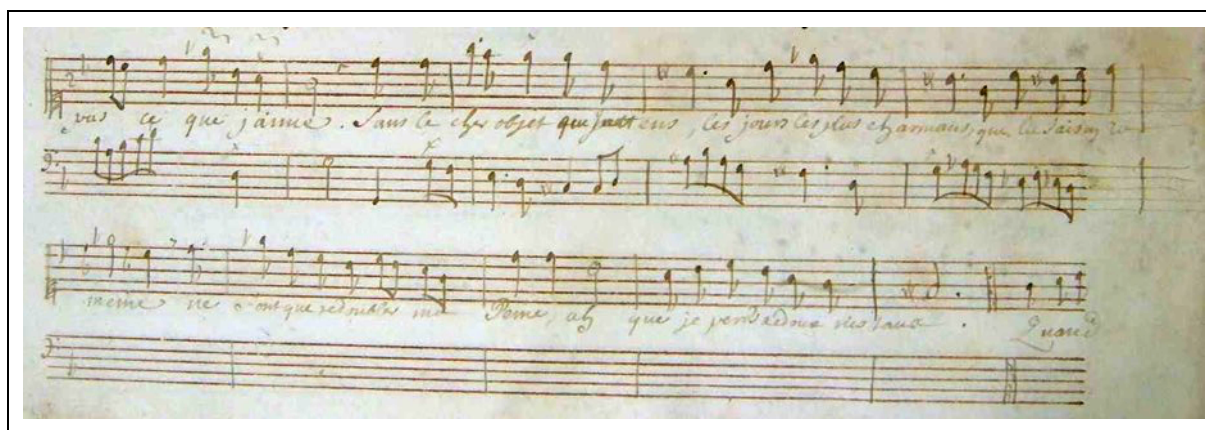 vas ce que j'aime. Sans le cher objet que j'attens, les jours les plus charmans, que la saison
même ne font que redoubler ma Peine, ah que je perds de doux instans. Quand